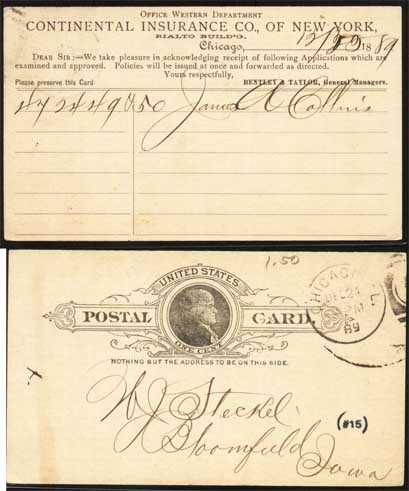 OFFICE WESTERN DEPARTMENT
CONTINENTAL INSURANCE CO., OF NEW YORK,
RIALTO BUILD'G.
Chicago, 12/23 1889
DEAR SIR:—We take pleasure in acknowledging receipt of following Applications which are
examined and approved. Policies will be issued at once and forwarded as directed.
Yours respectfully,
Please preserve this Card. BENTLEY & TAYLOR, General Managers.
472449 750 James A Collins
1.50
UNITED STATES
POSTAL CARD
ONE CENT
NOTHING BUT THE ADDRESS TO BE ON THIS SIDE.
CHICAGO, ILL.
DEC 24
PM
89
W J Steckel
Bloomfield
Iowa
(#15)